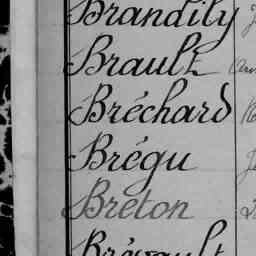 Brandily
Brault
Bréchard
Brégu
Breton
Brévault